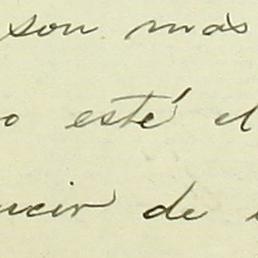 son más
o esté el
ucir de